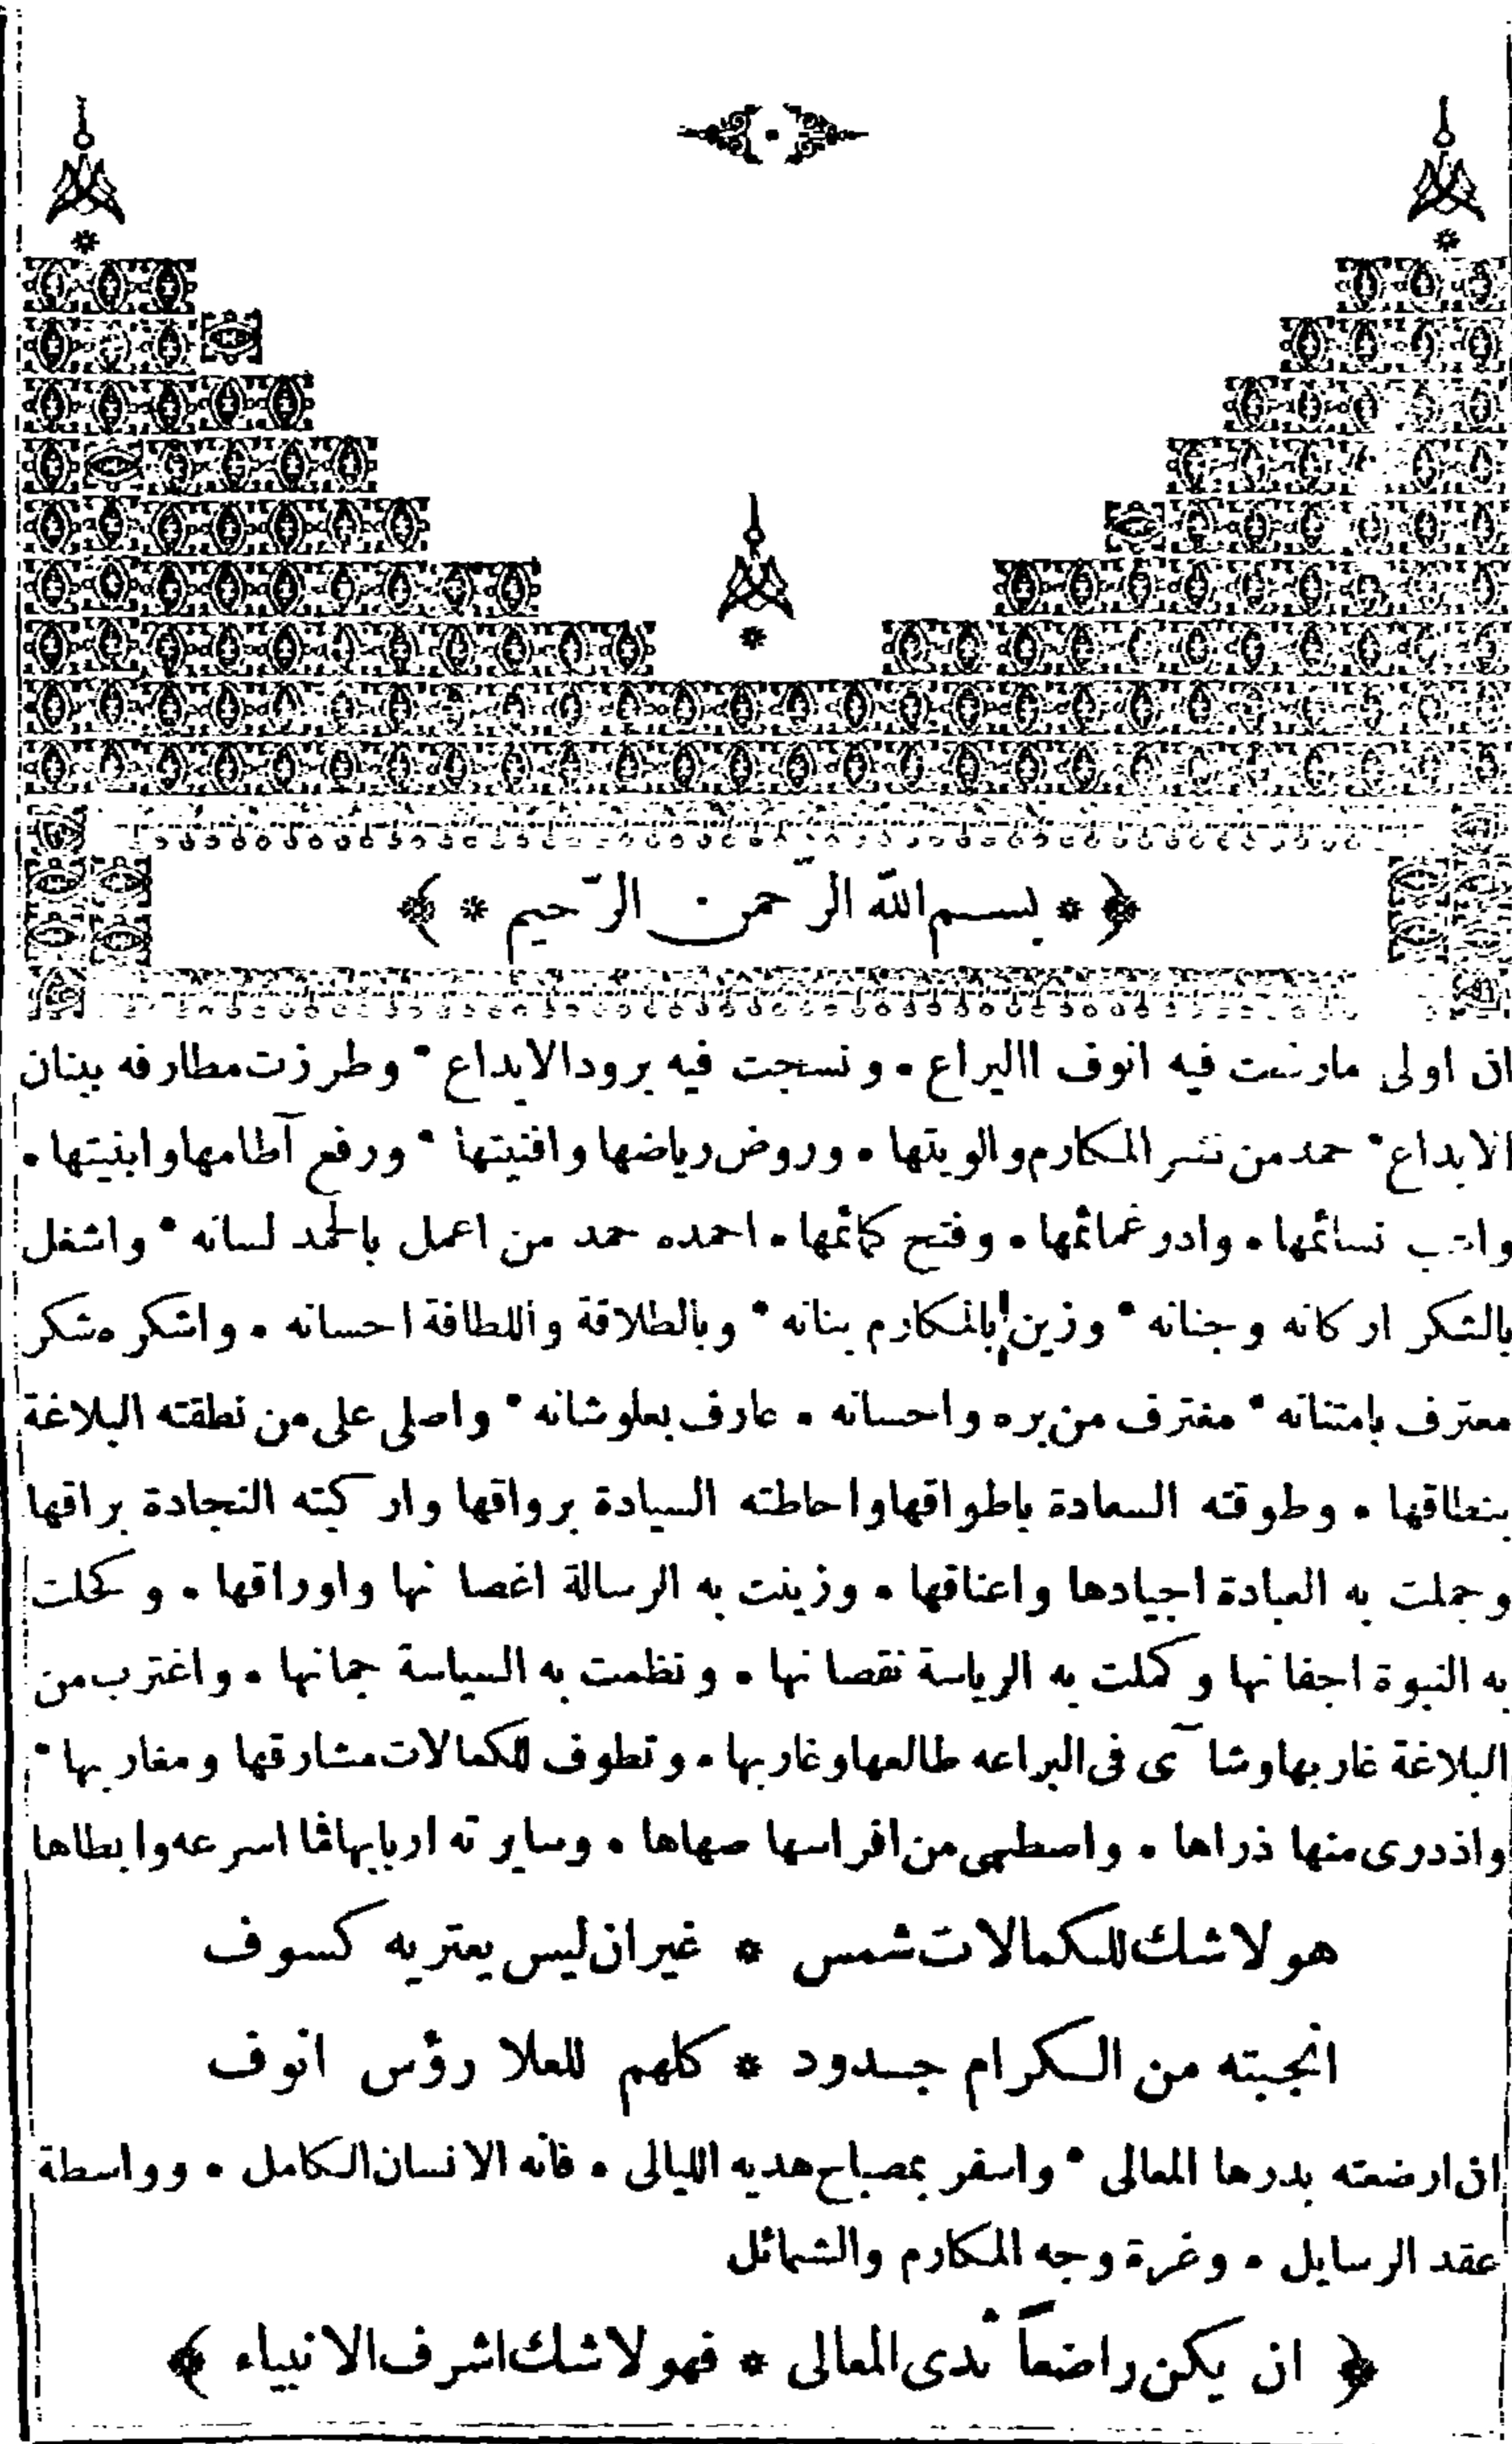 ﴿ * بسم الله الرّحمن الرّحيم * ﴾
ان اولى مارعفت فيه انوف االيراع • ونسجت فيه برود الابداع • وطرزت مطارفه ببنان
الابداع • حمد من نشر المكارم والويتها • وروض رياضها وافنيتها • ورفع آطامها وابنيتها •
واهب نسائمها • وادر غمائمها • وفتح كمائمها • احمده حمد من اعمل بالحمد لسانه • واشغل
بالشكر اركانه وجنانه • وزين بالمكارم بنانه • وبالطلاقة واللطافة احسانه • واشكره شكر
معترف بامتنانه • مغترف من بره واحسانه • عارف بعلوشانه • واصلى على من نطقته البلاغة
بنطاقها • وطوقته السعادة باطواقها واحاطته السيادة برواقها واركبته النجادة براقها
وجملت به العبادة اجيادها واعناقها • وزينت به الرسالة اغصانها واوراقها • وكحلت
به النبوة اجفانها وكملت به الرياسة نقصانها • ونظمت به السياسة جمانها • واغترب من
البلاغة غاربها وشآى فى البراعه طالعها وغاربها • وتطوف للكمالات مشارقها ومغاربها •
واذدرى منها ذراها • واصطهى من افراسها صهاها • وسايرته اربابها فما اسرعه وابطاها
هو لاشك للكمالات شمس * غير ان ليس يعتريه كسوف
انجبته من الكرام جدود * كلهم للعلا رؤس انوف
ان ارضعته بدرها المعالى • واسفر بمصباح هديه الليالى • فانه الانسان الكامل • وواسطة
عقد الرسايل • وغرة وجه المكارم والشمائل
﴿ ان يكن راضعاً ثدى المعالى * فهو لاشك اشرف الانبياء ﴾